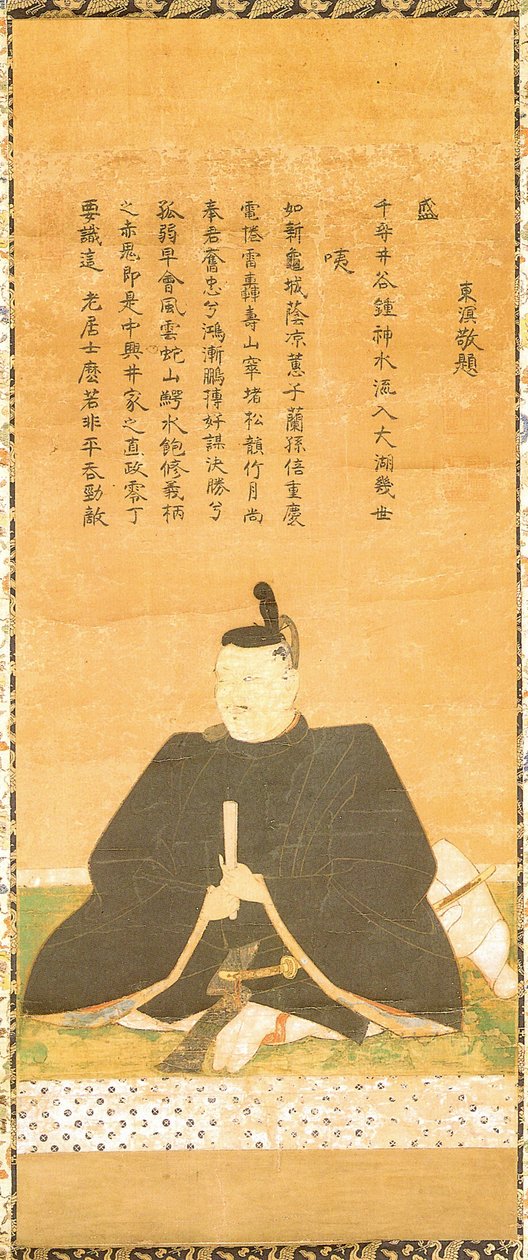 要識這 老居士麼若非平吞勁敵
之赤鬼即是中興井家之直政零丁
孤弱早會風雲蛇山鰐水飽修義柄
奉君奮忠兮鴻漸鵬摶好謀決勝兮
電捲雷轟壽山窣堵松韻竹月尚
如新龜城蔭凉蕙子蘭孫倍重慶
咦
千尋井谷鍾神水流入大湖幾世
盛
東溟敬題